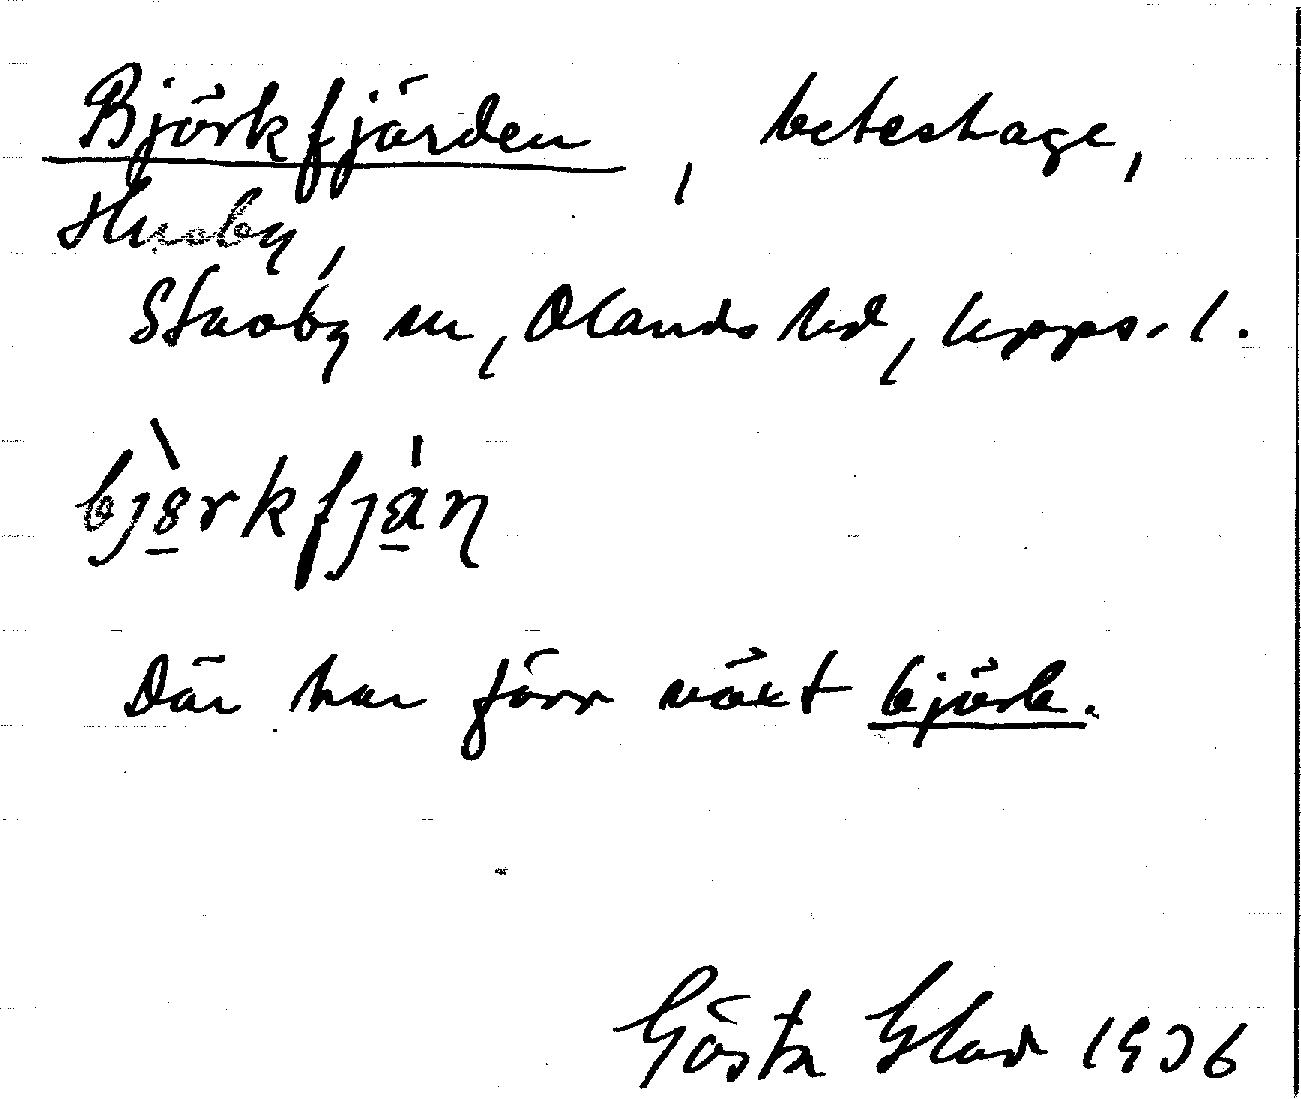 Björkfjärden, beteshage,
Husby,
Stavby sn, Olands hd, Upps. l.
björkfjän
Där har förr växt björk.
Gösta Glad 1936